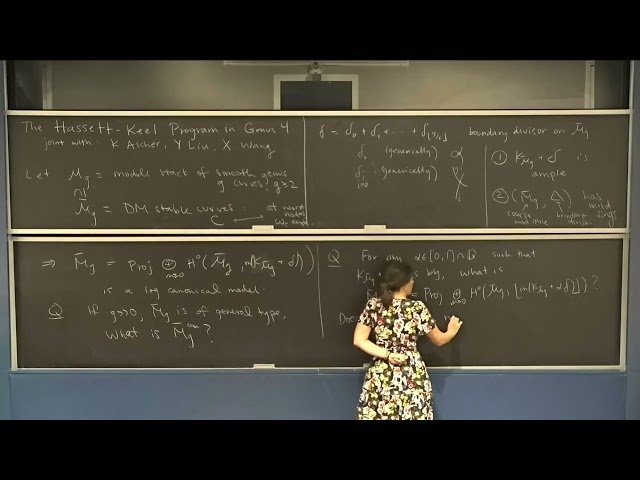 The Hassett-Keel Program in Genus 4
joint with: K Ascher, Y Liu, X Wang
Let M_g = moduli stack of smooth genus g curves, g≥2
∩
M̄_g = DM stable curves : at worst nodes
C
δ = δ_0 + δ_1 + ... + δ_⌊g/2⌋ boundary divisor on M̄_g
δ_0 (generically)
δ_i (generically)
i>0
① K_M̄_g + δ is ample
② (M̄_g, Δ) has mild sings
coarse mod space boundary divisor
⇒ M̄_g = Proj ⊕_{m≥0} H⁰(M̄_g, m(K_M̄_g + δ))
is a log canonical model.
Q If g>>0, M̄_g is of general type,
What is M̄_g^can?
Q For any α∈[0,1]∩Q such that
is big, what is
= Proj ⊕_{m≥0} H⁰(M̄_g, ⌊m(K_M̄_g + αδ)⌋)?